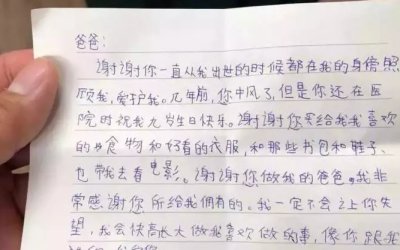 爸爸:
谢谢你一直从我出世的时候都在我的身傍照
顾我,爱护我。几年前,你中风了,但是你还在医
院时祝我九岁生日快乐。谢谢您买给我我喜欢
的食物和好看的衣服,和那些书包和鞋子、
也带我去看电影。谢谢您做我的爸爸。我非
常感谢你所给我俩有的。我一定不会让你失
望,我会快高长大做我喜欢做的事,像你